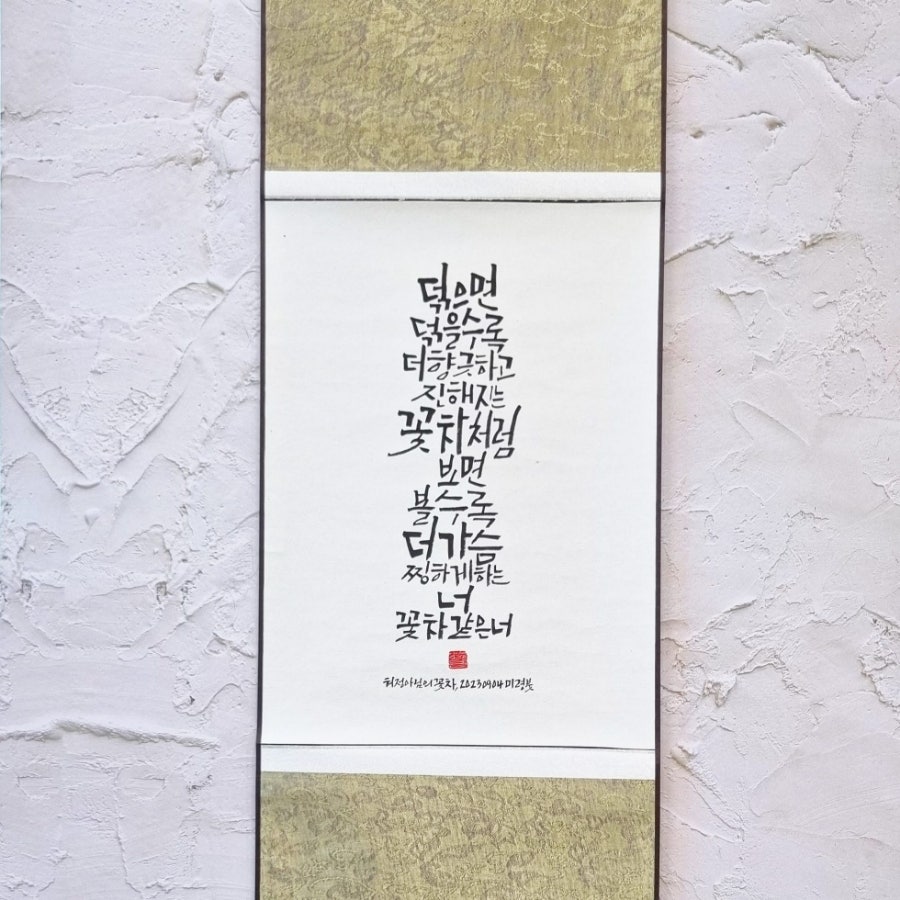 덖으면
덖을수록
더향긋하고
진해지는
꽃차처럼
보면
볼수록
더가슴
찡하게하는
너
꽃차같은너
최정아님의꽃차, 20230904 미경붓